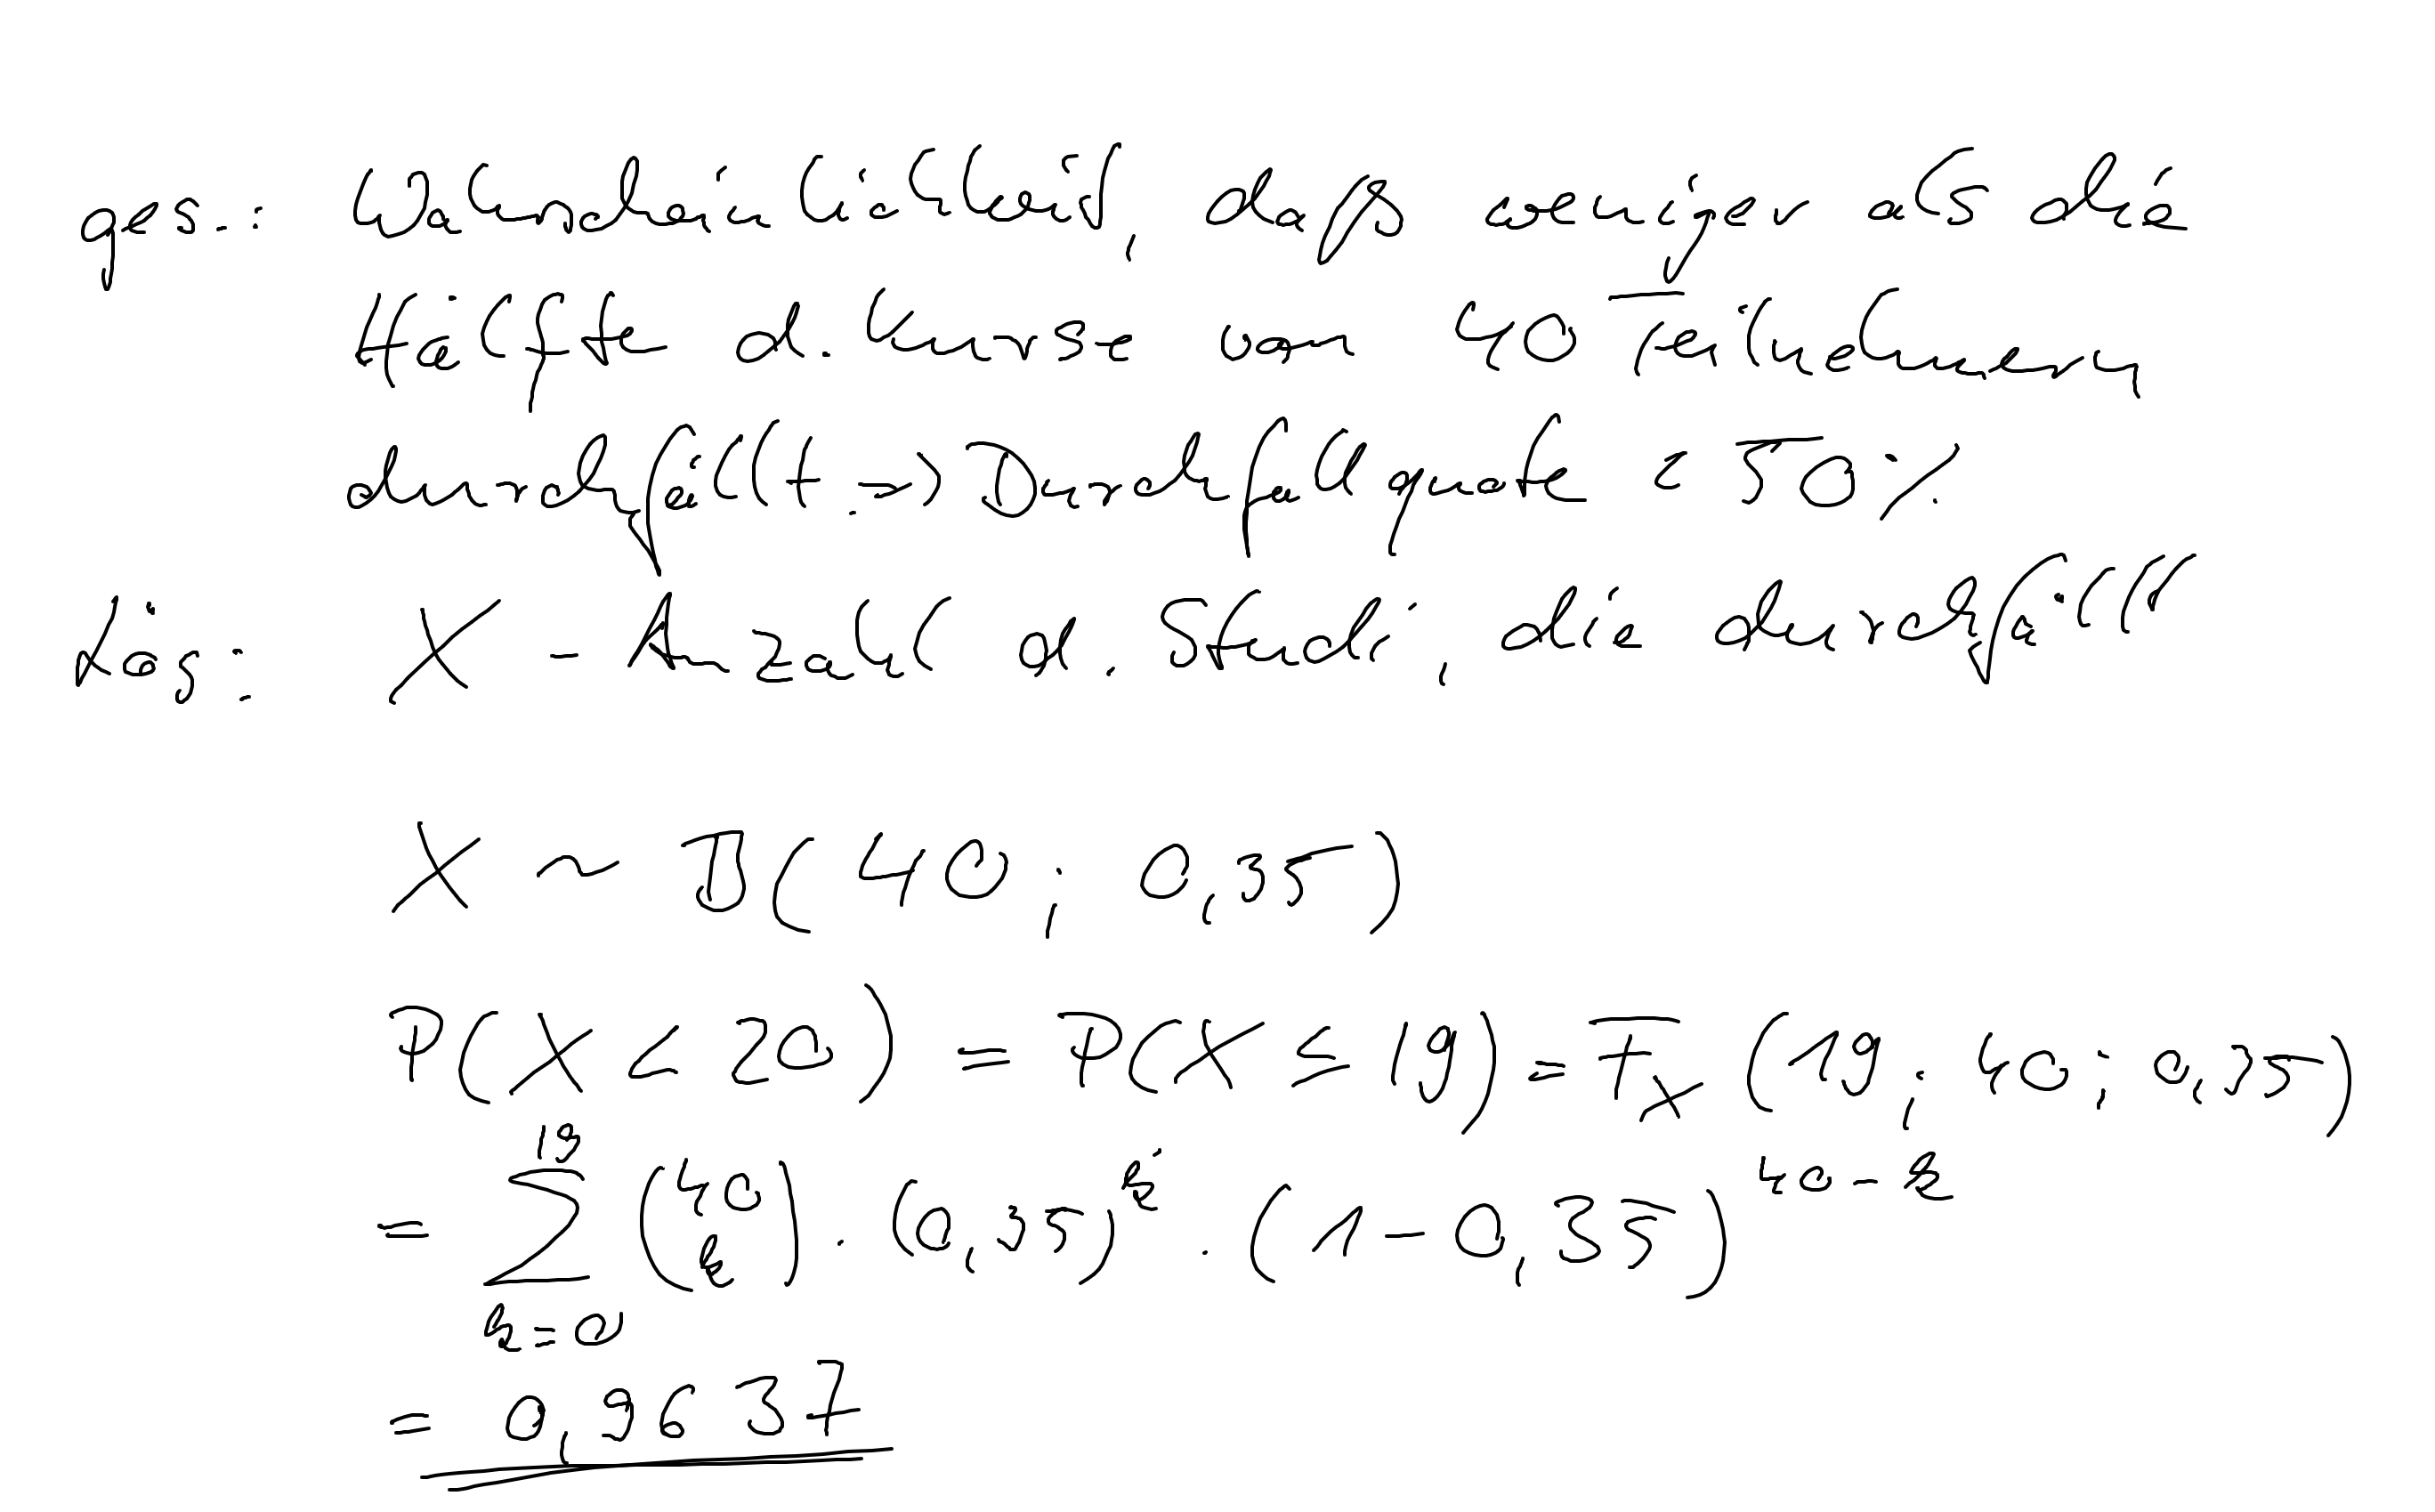 ges.: Wahrscheinlichkeit, daß weniger als die
Hälfte d. Kurses von 40 Teilnehmern
durchfällt. → Durchfallquote < 50%
Lös.: X - Anzahl d. Studi, die durchfällt
X ~ B(40; 0,35)
P(X < 20) = P(X ≤ 19) = F_X (19; 40; 0,35)
= ∑_{k=0}^{19} (40 k) · (0,35)^k · (1 - 0,35)^{40-k}
= 0,9637